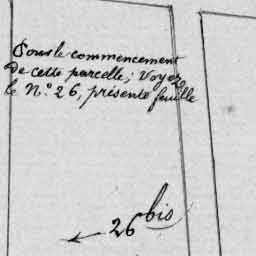 Pour le commencement
de cette parcelle; Voyez
le N.º 26, présente feuille
26 bis